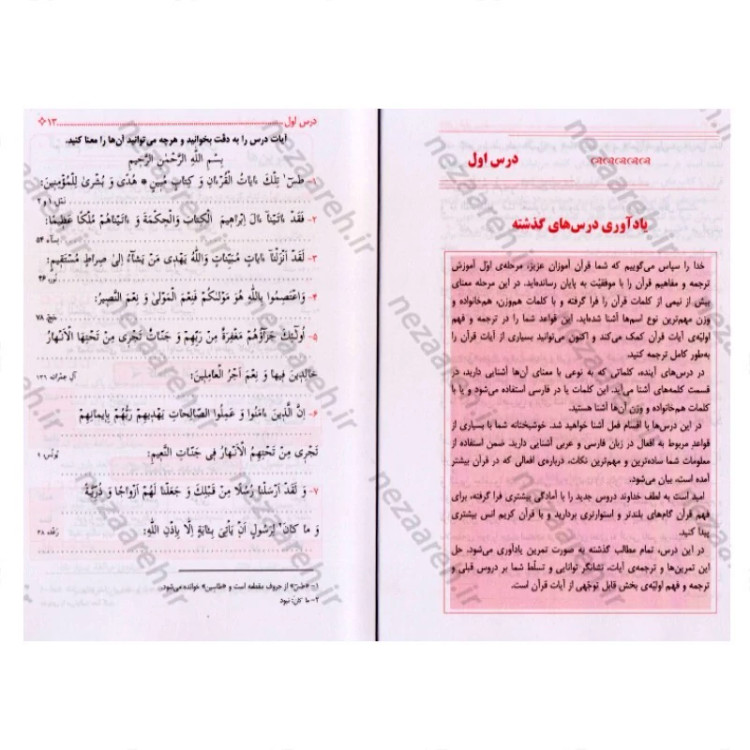 درس اول
یادآوری درس‌های گذشته
خدا را سپاس می‌گوییم که شما قرآن آموزان عزیز، مرحله‌ی اوّل آموزش
ترجمه و مفاهیم قرآن را با موفقیّت به پایان رسانده‌اید. در این مرحله معنای
بیش از نیمی از کلمات قرآن را فرا گرفته و با کلمات هم‌وزن، هم‌خانواده و
وزن مهم‌ترین نوع اسم‌ها آشنا شده‌اید. این قواعد شما را در ترجمه و فهم
اولیّه‌ی آیات قرآن کمک می‌کند و اکنون می‌توانید بسیاری از آیات قرآن را
به‌طور کامل ترجمه کنید.
در درس‌های آینده، کلماتی که به نوعی با معنای آن‌ها آشنایی دارید، در
قسمت کلمه‌های آشنا می‌آید. این کلمات یا در فارسی استفاده می‌شود و یا با
کلمات هم‌خانواده و وزن آن‌ها آشنا هستید.
در این درس‌ها با اقسام فعل آشنا خواهید شد. خوشبختانه شما با بسیاری از
قواعد مربوط به افعال در زبان فارسی و عربی آشنایی دارید. ضمن استفاده از
معلومات شما ساده‌ترین و مهم‌ترین نکات، درباره‌ی افعالی که در قرآن بیشتر
آمده است، بیان می‌شود.
امید است به لطف خداوند دروس جدید را با آمادگی بیشتری فرا گرفته، برای
فهم قرآن گام‌های بلندتر و استوارتری بردارید و با قرآن کریم انس بیشتری
پیدا کنید.
در این درس، تمام مطالب گذشته به صورت تمرین یادآوری می‌شود. حل
این تمرین‌ها و ترجمه‌ی آیات، نشانگر توانایی و تسلّط شما بر دروس قبلی و
ترجمه و فهم اولیّه‌ی بخش قابل توجّهی از آیات قرآن است.
درس اول ۱۳
آیات درس را به دقّت بخوانید و هرچه می‌توانید آن‌ها را معنا کنید.
بِسْمِ اللّٰهِ الرَّحْمٰنِ الرَّحیمِ
۱- طٰسٓ ۱ تِلْكَ ءٰایاتُ الْقُرْءٰانِ وَ كِتابٍ مُبینٍ * هُدًى وَ بُشْرىٰ لِلْمُؤْمِنینَ:
نمل، ۱ و ۲
۲- فَقَدْ ءٰاتَیْنآ ءٰالَ اِبْراهیمَ الْكِتابَ وَالْحِكْمَةَ وَ ءٰاتَیْناهُمْ مُلْكًا عَظیمًا:
نساء، ۵۴
۳- لَقَدْ اَنْزَلْنآ ءٰایاتٍ مُبَیِّناتٍ وَاللّٰهُ یَهْدی مَنْ یَشآءُ اِلىٰ صِراطٍ مُسْتَقیمٍ:
نور، ۴۶
۴- وَاعْتَصِمُوا بِاللّٰهِ هُوَ مَوْلٰىكُمْ فَنِعْمَ الْمَوْلىٰ وَ نِعْمَ النَّصیرُ:
حج، ۷۸
۵- اُولٰٓئِكَ جَزآؤُهُمْ مَغْفِرَةٌ مِنْ رَبِّهِمْ وَ جَنّاتٌ تَجْری مِنْ تَحْتِهَا الْاَنْهارُ
خالِدینَ فیها وَ نِعْمَ اَجْرُ الْعامِلینَ:
آل عمران، ۱۳۶
۶- اِنَّ الَّذینَ ءٰامَنُوا وَ عَمِلُوا الصّالِحاتِ یَهْدیهِمْ رَبُّهُمْ بِایمانِهِمْ
تَجْری مِنْ تَحْتِهِمُ الْاَنْهارُ فی جَنّاتِ النَّعیمِ:
یونس، ۹
۷- وَ لَقَدْ اَرْسَلْنا رُسُلًا مِنْ قَبْلِكَ وَ جَعَلْنا لَهُمْ اَزْواجًا وَ ذُرِّیَّةً
وَ ما كانَ ۲ لِرَسُولٍ اَنْ یَأْتِیَ بِـٔایَةٍ اِلّا بِاِذْنِ اللّٰهِ:
رعد، ۳۸
۱- «طٰسٓ» از حروف مقطعه است و «طاسین» خوانده می‌شود.
۲- ما كانَ: نبود
nezaareh.ir